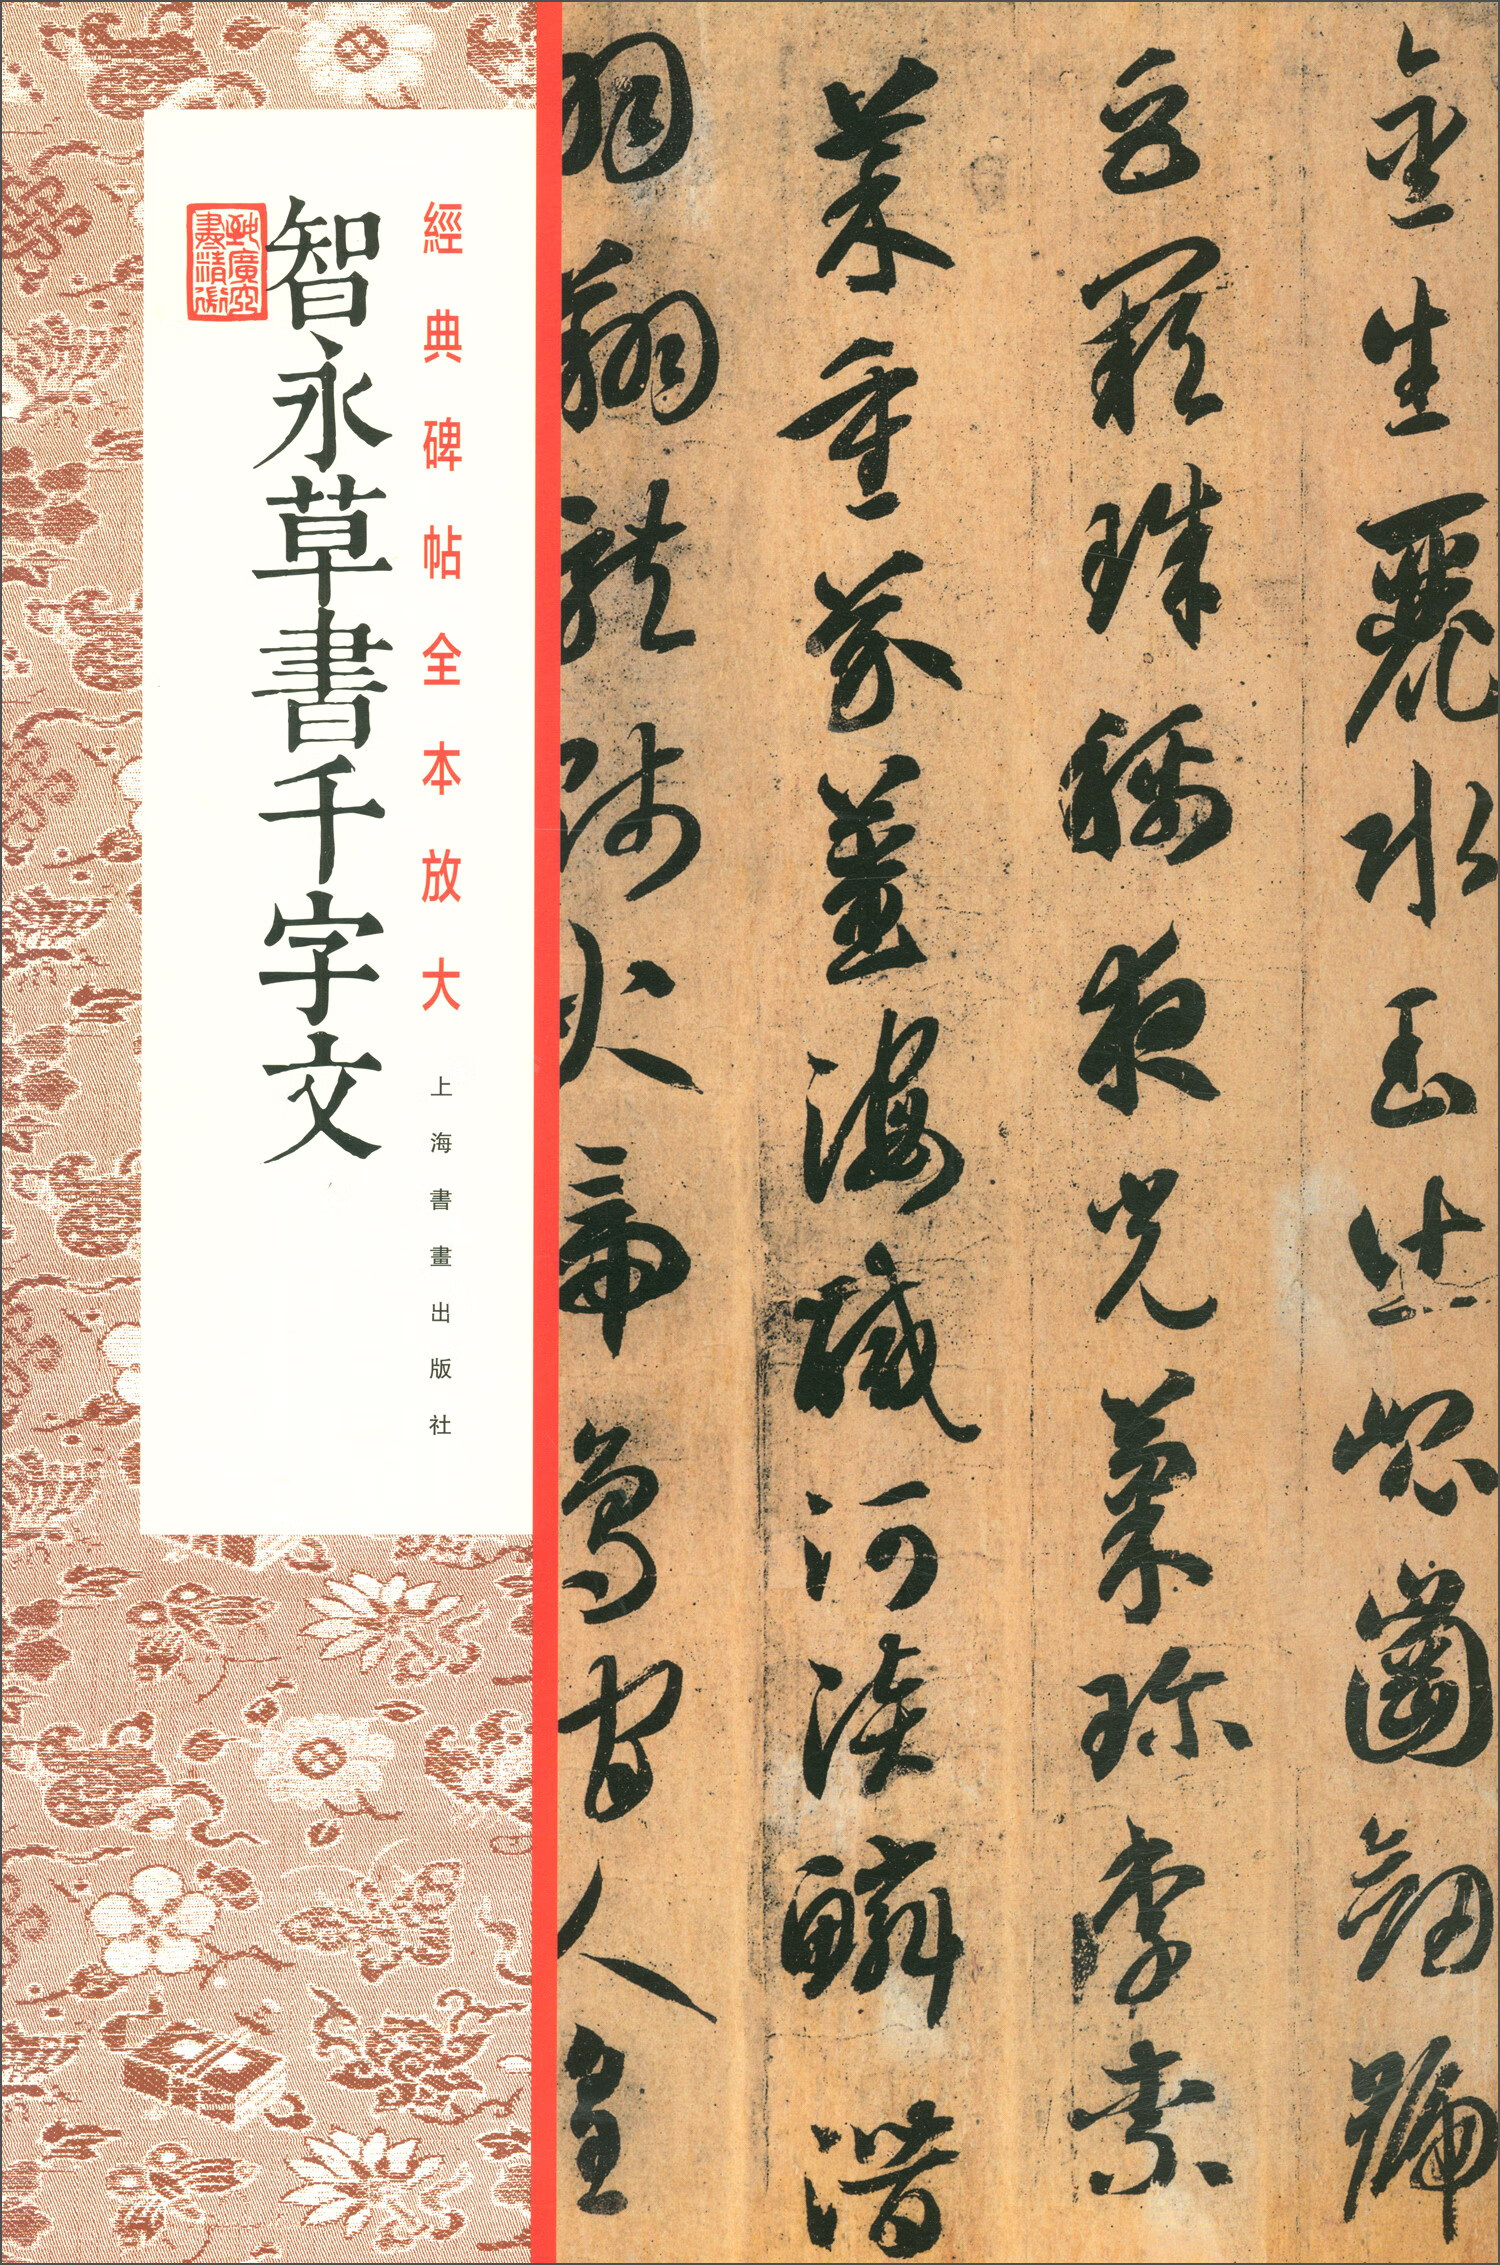 金生麗水玉出崐崗劍號
巨闕珠稱夜光菓珍李柰
菜重芥薑海醎河淡鱗潛
羽翔龍師火帝鳥官人皇
經典碑帖全本放大
上海書畫出版社
智永草書千字文